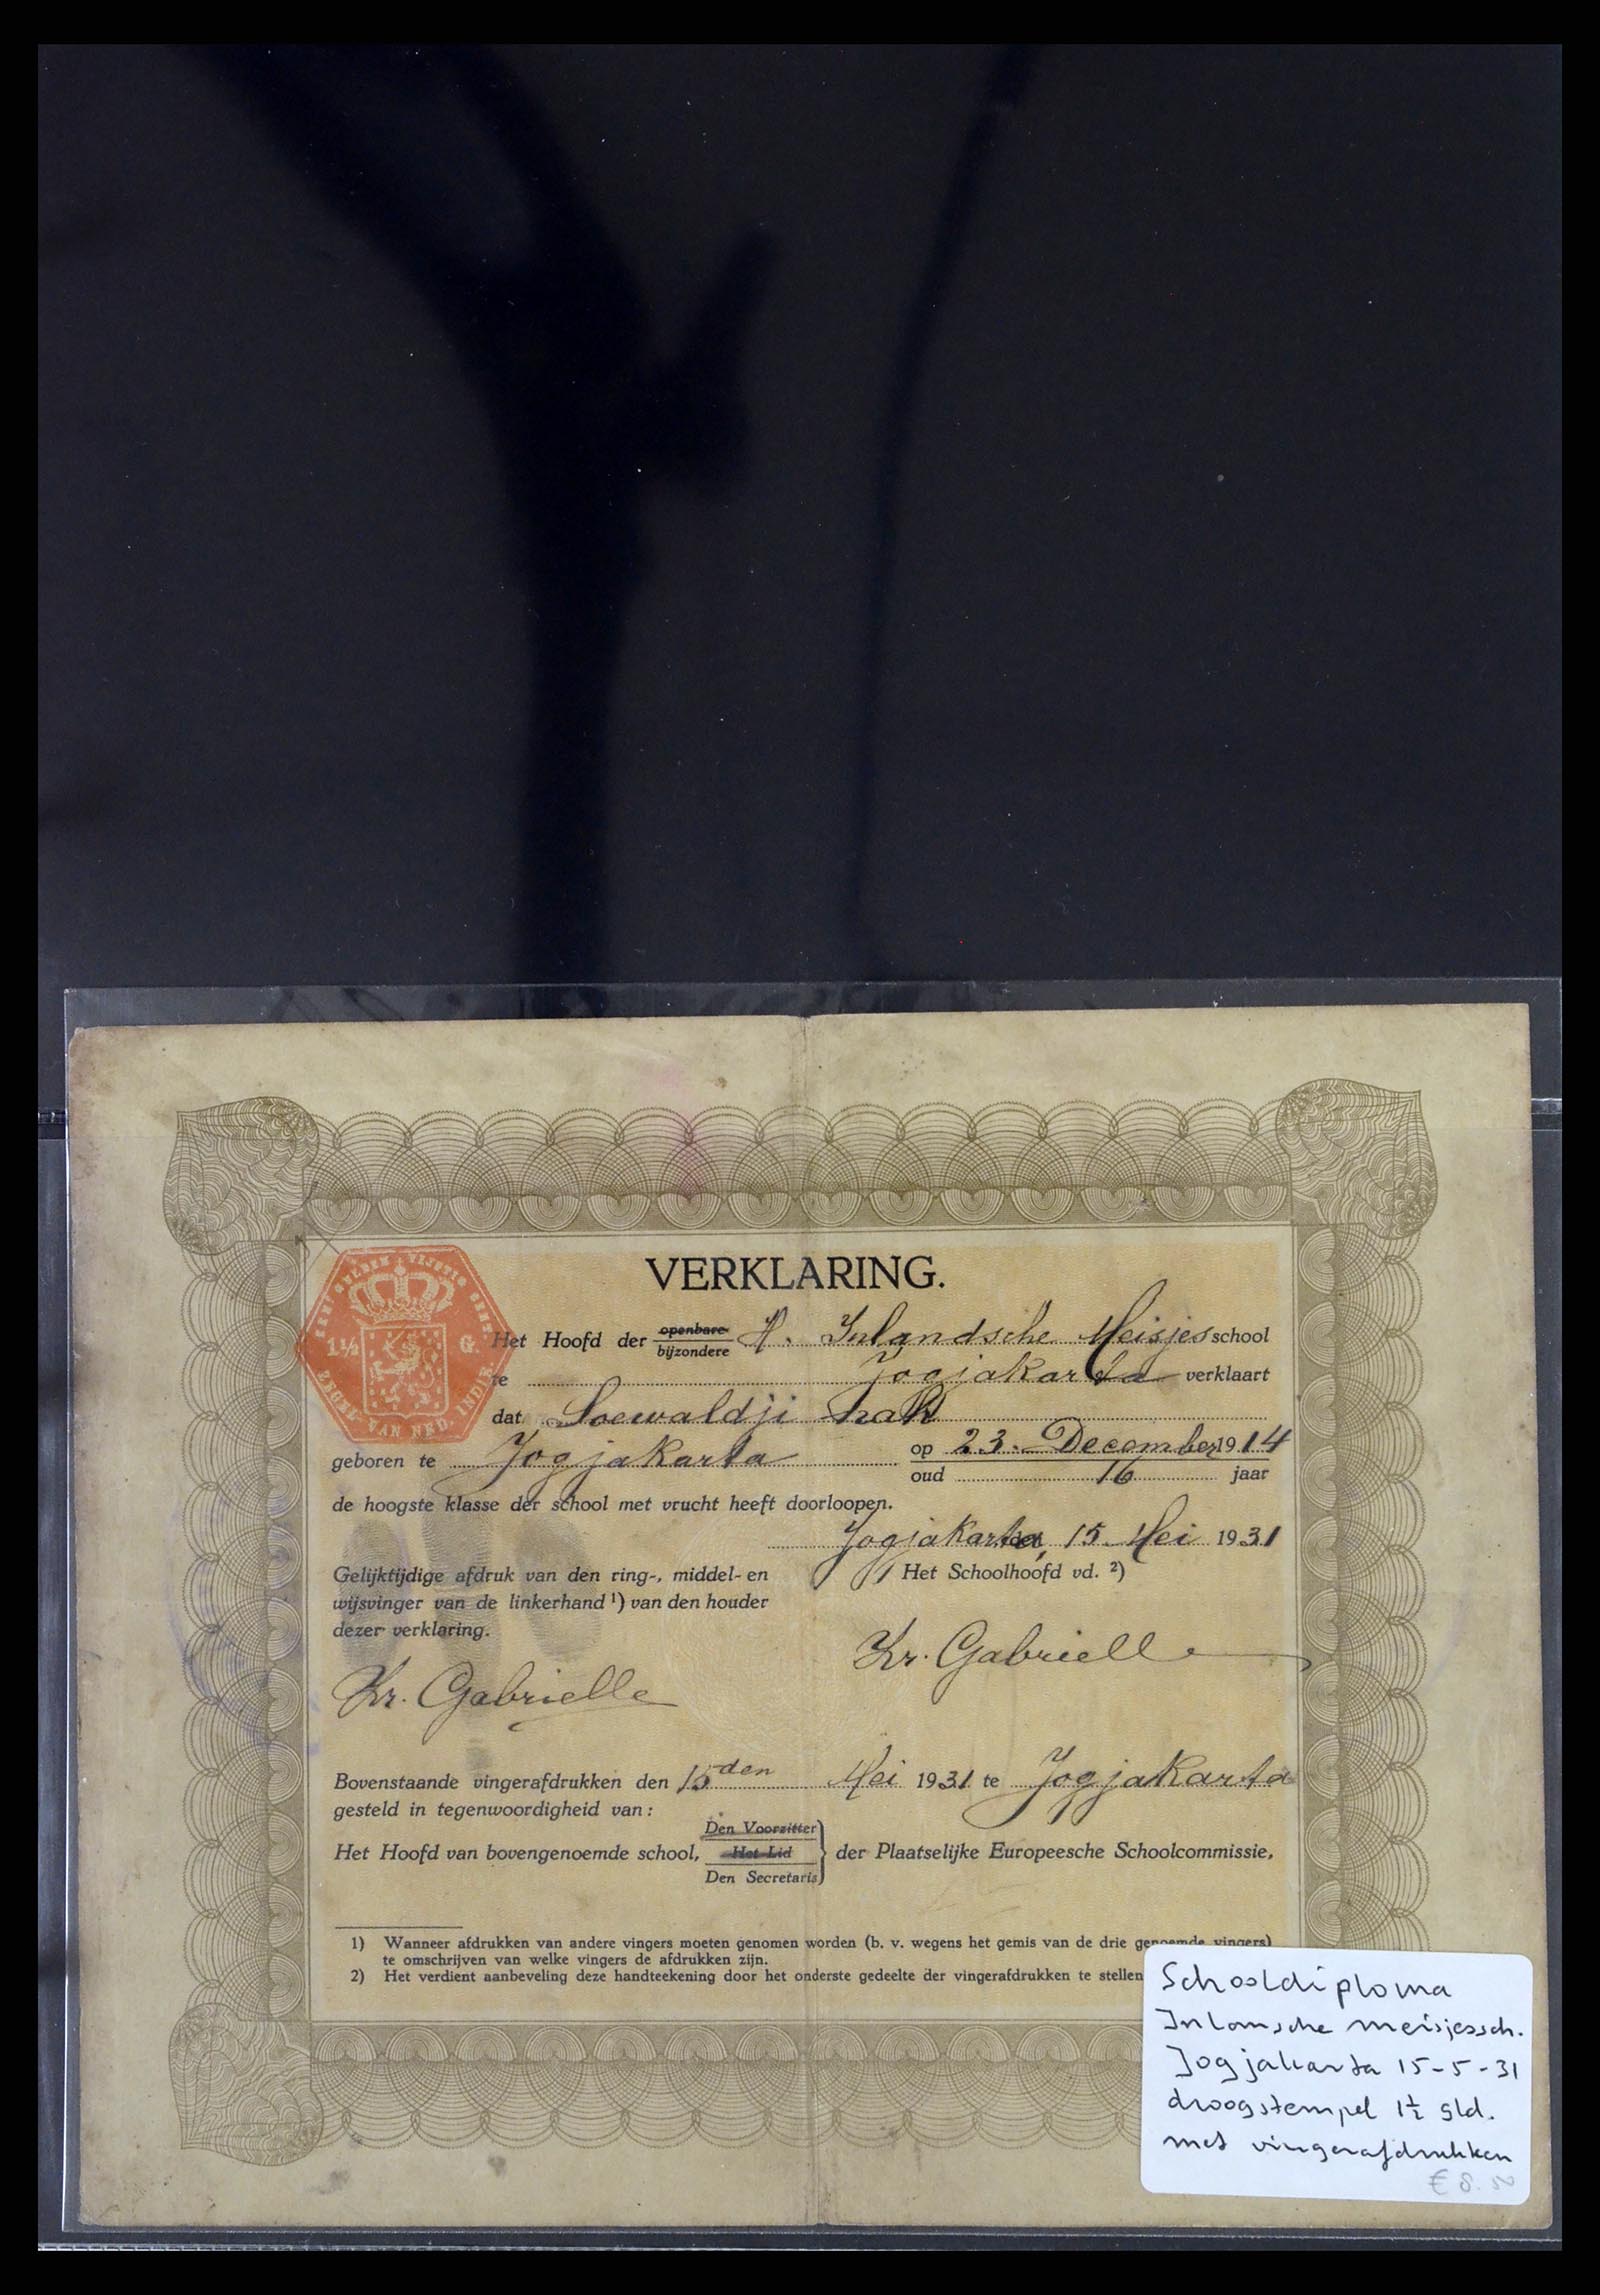 VERKLARING.
EEN GULDEN VIJFTIG CENT.
1½ G.
ZEGEL VAN NED. INDIE
Het Hoofd der openbare bijzondere H. Inlandsche Meisjes school
te Jogjakarta verklaart
dat Soewaldji
geboren te Jogjakarta op 23. December 1914
oud 16 jaar
de hoogste klasse der school met vrucht heeft doorloopen.
Jogjakarta, 15 Mei 1931
Gelijktijdige afdruk van den ring-, middel- en
wijsvinger van de linkerhand ¹) van den houder
dezer verklaring.
Het Schoolhoofd vd. ²)
Zr. Gabrielle
Zr. Gabrielle
Bovenstaande vingerafdrukken den 15den Mei 1931 te Jogjakarta
gesteld in tegenwoordigheid van:
Den Voorzitter
Het Hoofd van bovengenoemde school, Het Lid der Plaatselijke Europeesche Schoolcommissie,
Den Secretaris
1) Wanneer afdrukken van andere vingers moeten genomen worden (b. v. wegens het gemis van de drie genoemde vingers)
te omschrijven van welke vingers de afdrukken zijn.
2) Het verdient aanbeveling deze handteekening door het onderste gedeelte der vingerafdrukken te stellen
Schooldiploma
Inlansche meisjessch.
Jogjakarta 15-5-31
droogstempel 1½ gld.
met vingerafdrukken
€ 8.50